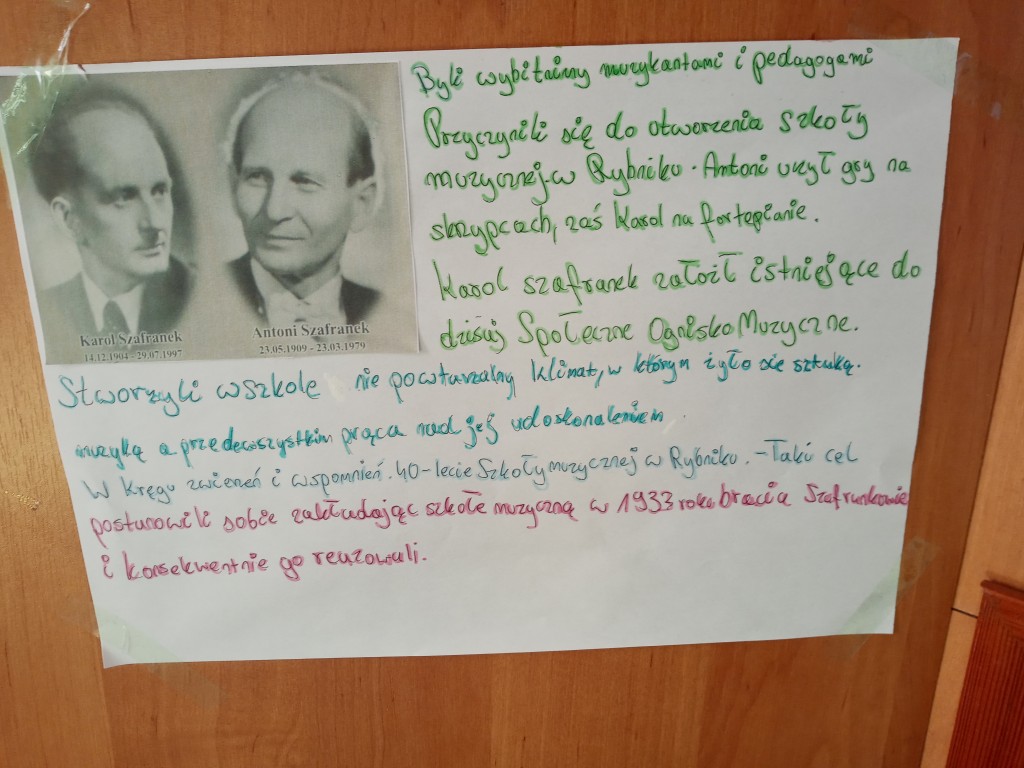 Karol Szafranek
14.12.1904 - 29.07.1997
Antoni Szafranek
23.05.1909 - 23.03.1979
Byli wybitainny muzykantami i pedagogami
Przyczynili się do otworzenia szkoły
muzycznej w Rybniku. Antoni uczył gry na
skrzypcach, zaś Karol na fortepianie.
Karol szafranek założił istniejące do
dzisiaj Społeczne Ognisko Muzyczne.
Stworzyli w szkole nie powtarzalny klimat, w którym żyło się sztuką.
muzyką a przedewszystkim pracą nad jej udoskonaleniem.
W Kręgu zwierzeń i wspomnień. 40-lecie Szkoły muzycznej w Rybniku. -Taki cel
postanowili sobie zakładając szkołe muzyczną w 1933 roku bracia Szafrankowie
i konsekwentnie go